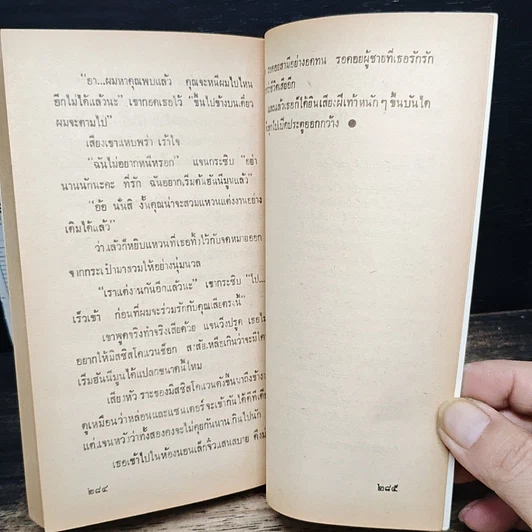 "อา...ผมหาคุณพบแล้ว คุณจะหนีผมไปไหน
อีกไม่ได้แล้วนะ" เขากอดเธอไว้ "ขึ้นไปข้างบนเดี๋ยว
ผมจะตามไป"
เสียงเขาแหบพร่า เร้าใจ
"ฉันไม่อยากหนีหรอก" แจนกระซิบ "อย่า
นานนักนะคะ ที่รัก ฉันอยากเริ่มต้นฮันนีมูนแล้ว"
"อ้อ นั่นสิ งั้นคุณน่าจะสวมแหวนแต่งงานอย่าง
เดิมได้แล้ว"
ว่าแล้วก็หยิบแหวนที่เธอทิ้งไว้กับจดหมายออก
จากกระเป๋ามาสวมให้อย่างนุ่มนวล
"เราแต่งงานกันอีกแล้วนะ" เขากระซิบ "ไป...
เร็วเข้า ก่อนที่ผมจะร่วมรักกับคุณเสียตรงนี้"
เขาพูดจริงทำจริงเสียด้วย แจนวิ่งปรูด เธอไม่
อยากให้มิสซิสโคแวนช็อก
เริ่มฮันนีมูนได้แปลกขนาดนี้ไหม
เสียงหัวเราะของมิสซิสโคแวนดังขึ้นมาถึงข้าง
ดูเหมือนว่าหล่อนและแซนเดอร์จะเข้ากันได้ดีทีเดีย
แต่แจนหวังว่าทั้งสองคงจะไม่คุยกันนานเกินไปนัก
เธอเข้าไปในห้องนอนเล็กจิ๋วแสนสบาย ดึงม
๒๘๔
รอคอยสามีอย่างอดทน รอคอยผู้ชายที่เธอรักรัก
ชีวิตเสียอีก
และแล้วเธอก็ได้ยินเสียงฝีเท้าหนักๆ ขึ้นบันได
ลุกไปเปิดประตูออกกว้าง
๒๘๕